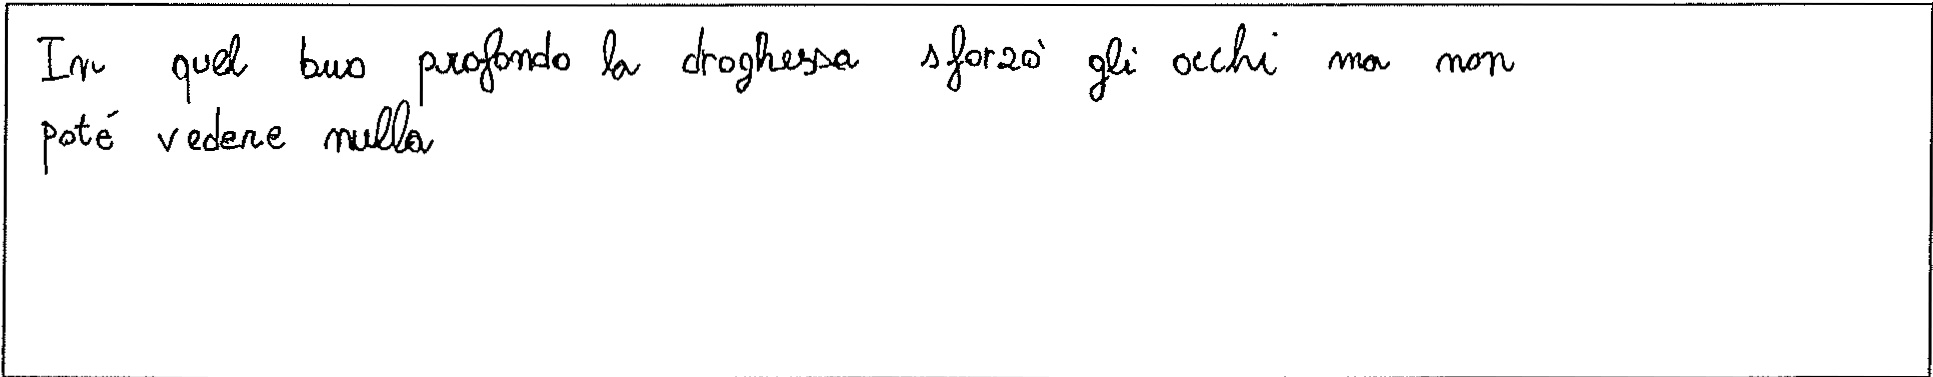 In quel buo profondo la droghessa sforzò gli occhi ma non
poté vedere nulla